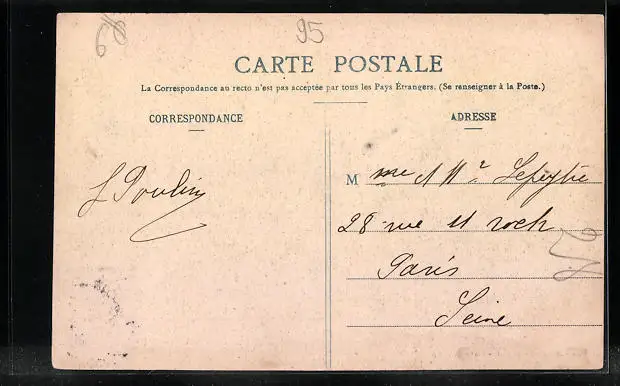 68
95
CARTE POSTALE
La Correspondance au recto n'est pas acceptée par tous les Pays Étrangers. (Se renseigner à la Poste.)
CORRESPONDANCE
ADRESSE
J Poulin
M me et Mr
28 rue St roch
Paris
Seine